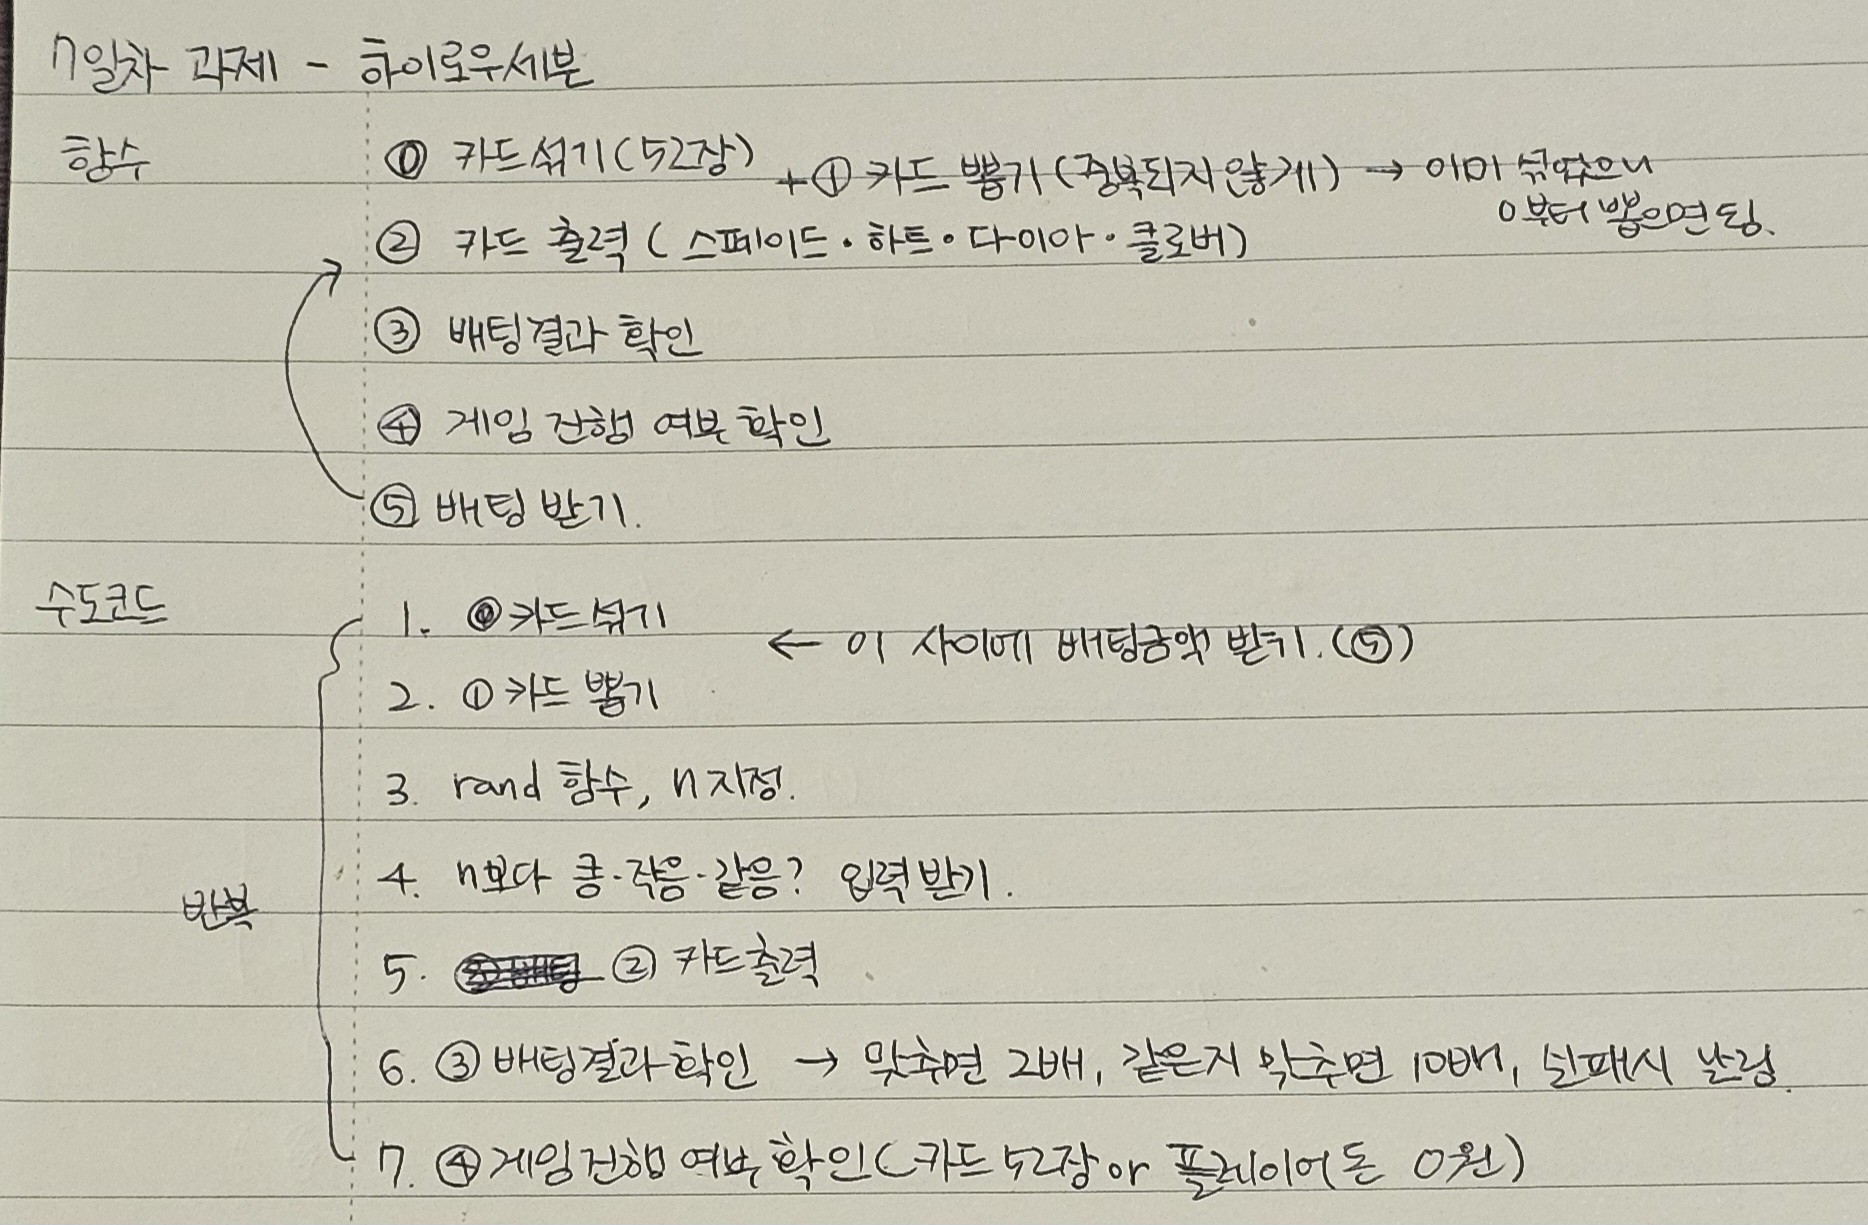 7일차 과제 - 하이로우세븐
함수 ⓪ 카드섞기(52장) + ① 카드 뽑기(중복되지 않게) → 이미 섞었으니
0부터 뽑으면 됨.
② 카드 출력(스페이드·하트·다이아·클로버)
③ 배팅결과 확인
④ 게임 진행 여부 확인
⑤ 배팅 받기.
수도코드
1. ⓪ 카드섞기
← 이 사이에 배팅금액 받기.(⑤)
2. ① 카드 뽑기
3. rand 함수, n지정.
4. n보다 큼·작음·같음? 입력받기.
반복
5. ② 카드출력
6. ③ 배팅결과확인 → 맞추면 2배, 같은지 맞추면 10배, 실패시 날림.
7. ④ 게임진행 여부 확인(카드52장 or 플레이어 돈 0원)